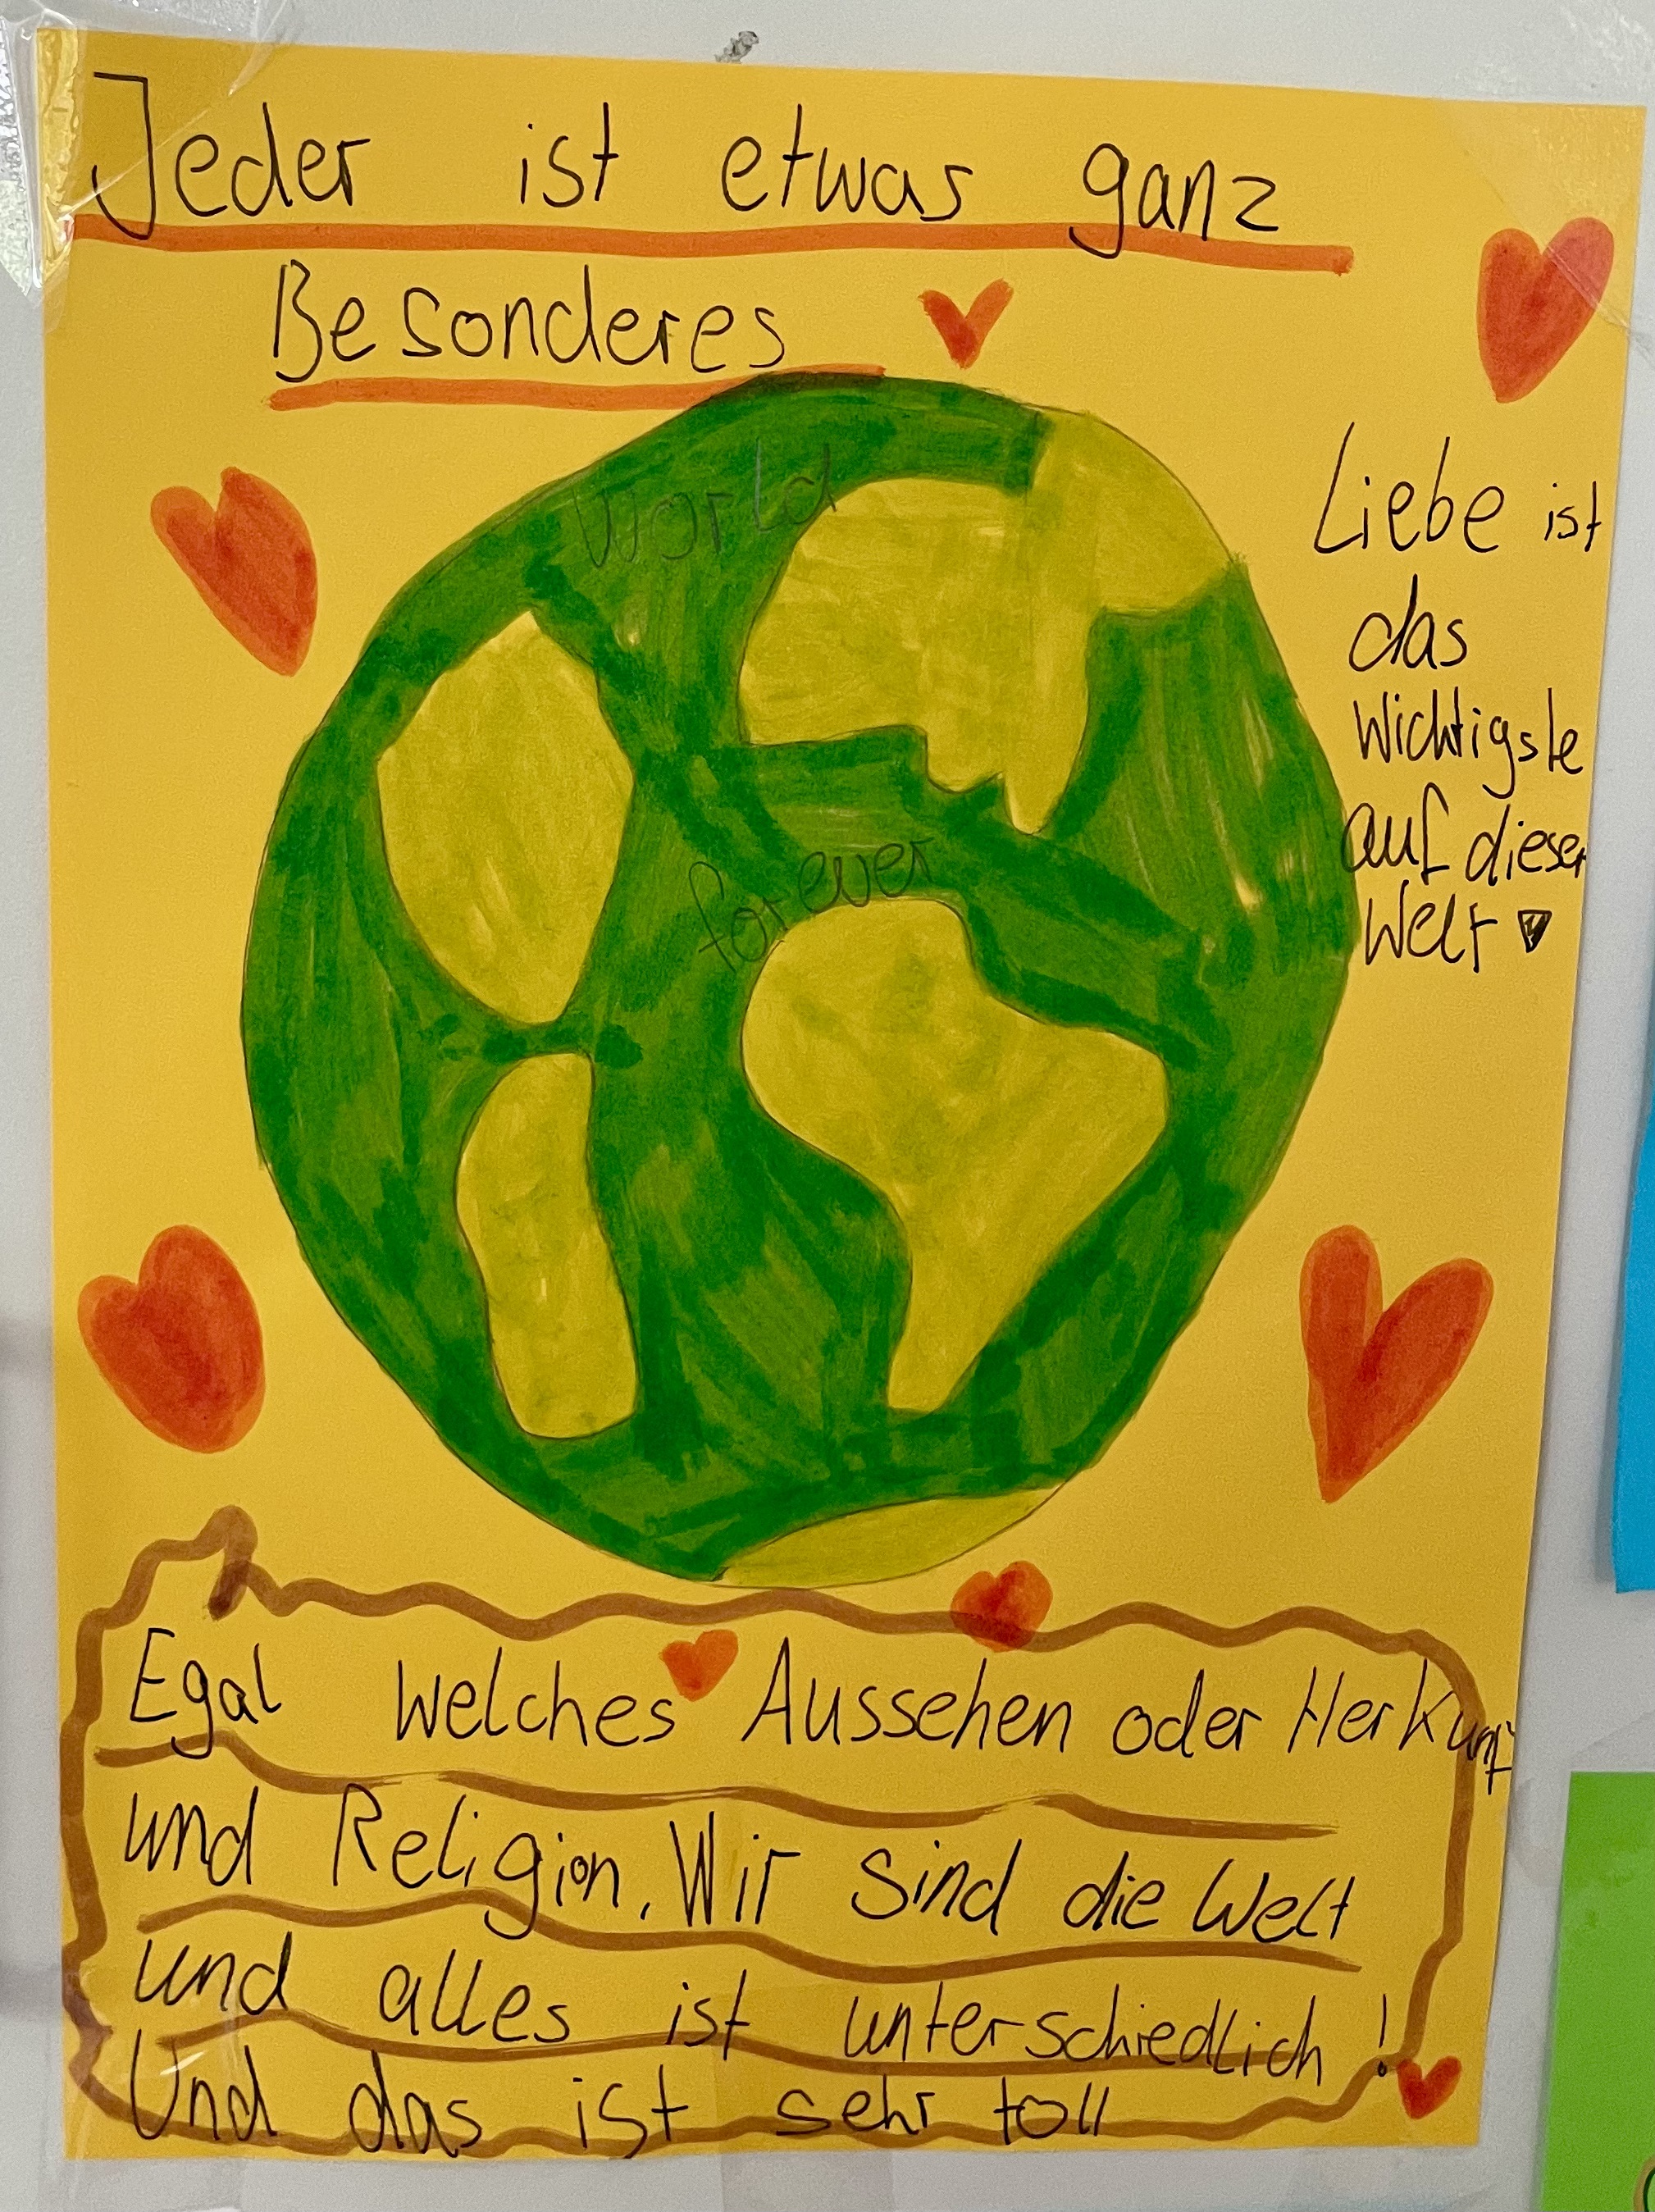 Jeder ist etwas ganz
Besonderes
World
forever
Liebe ist
das
Wichtigste
auf dieser
Welt
Egal welches Aussehen oder Herkunft
und Religion. Wir sind die Welt
und alles ist unterschiedlich!
Und das ist sehr toll